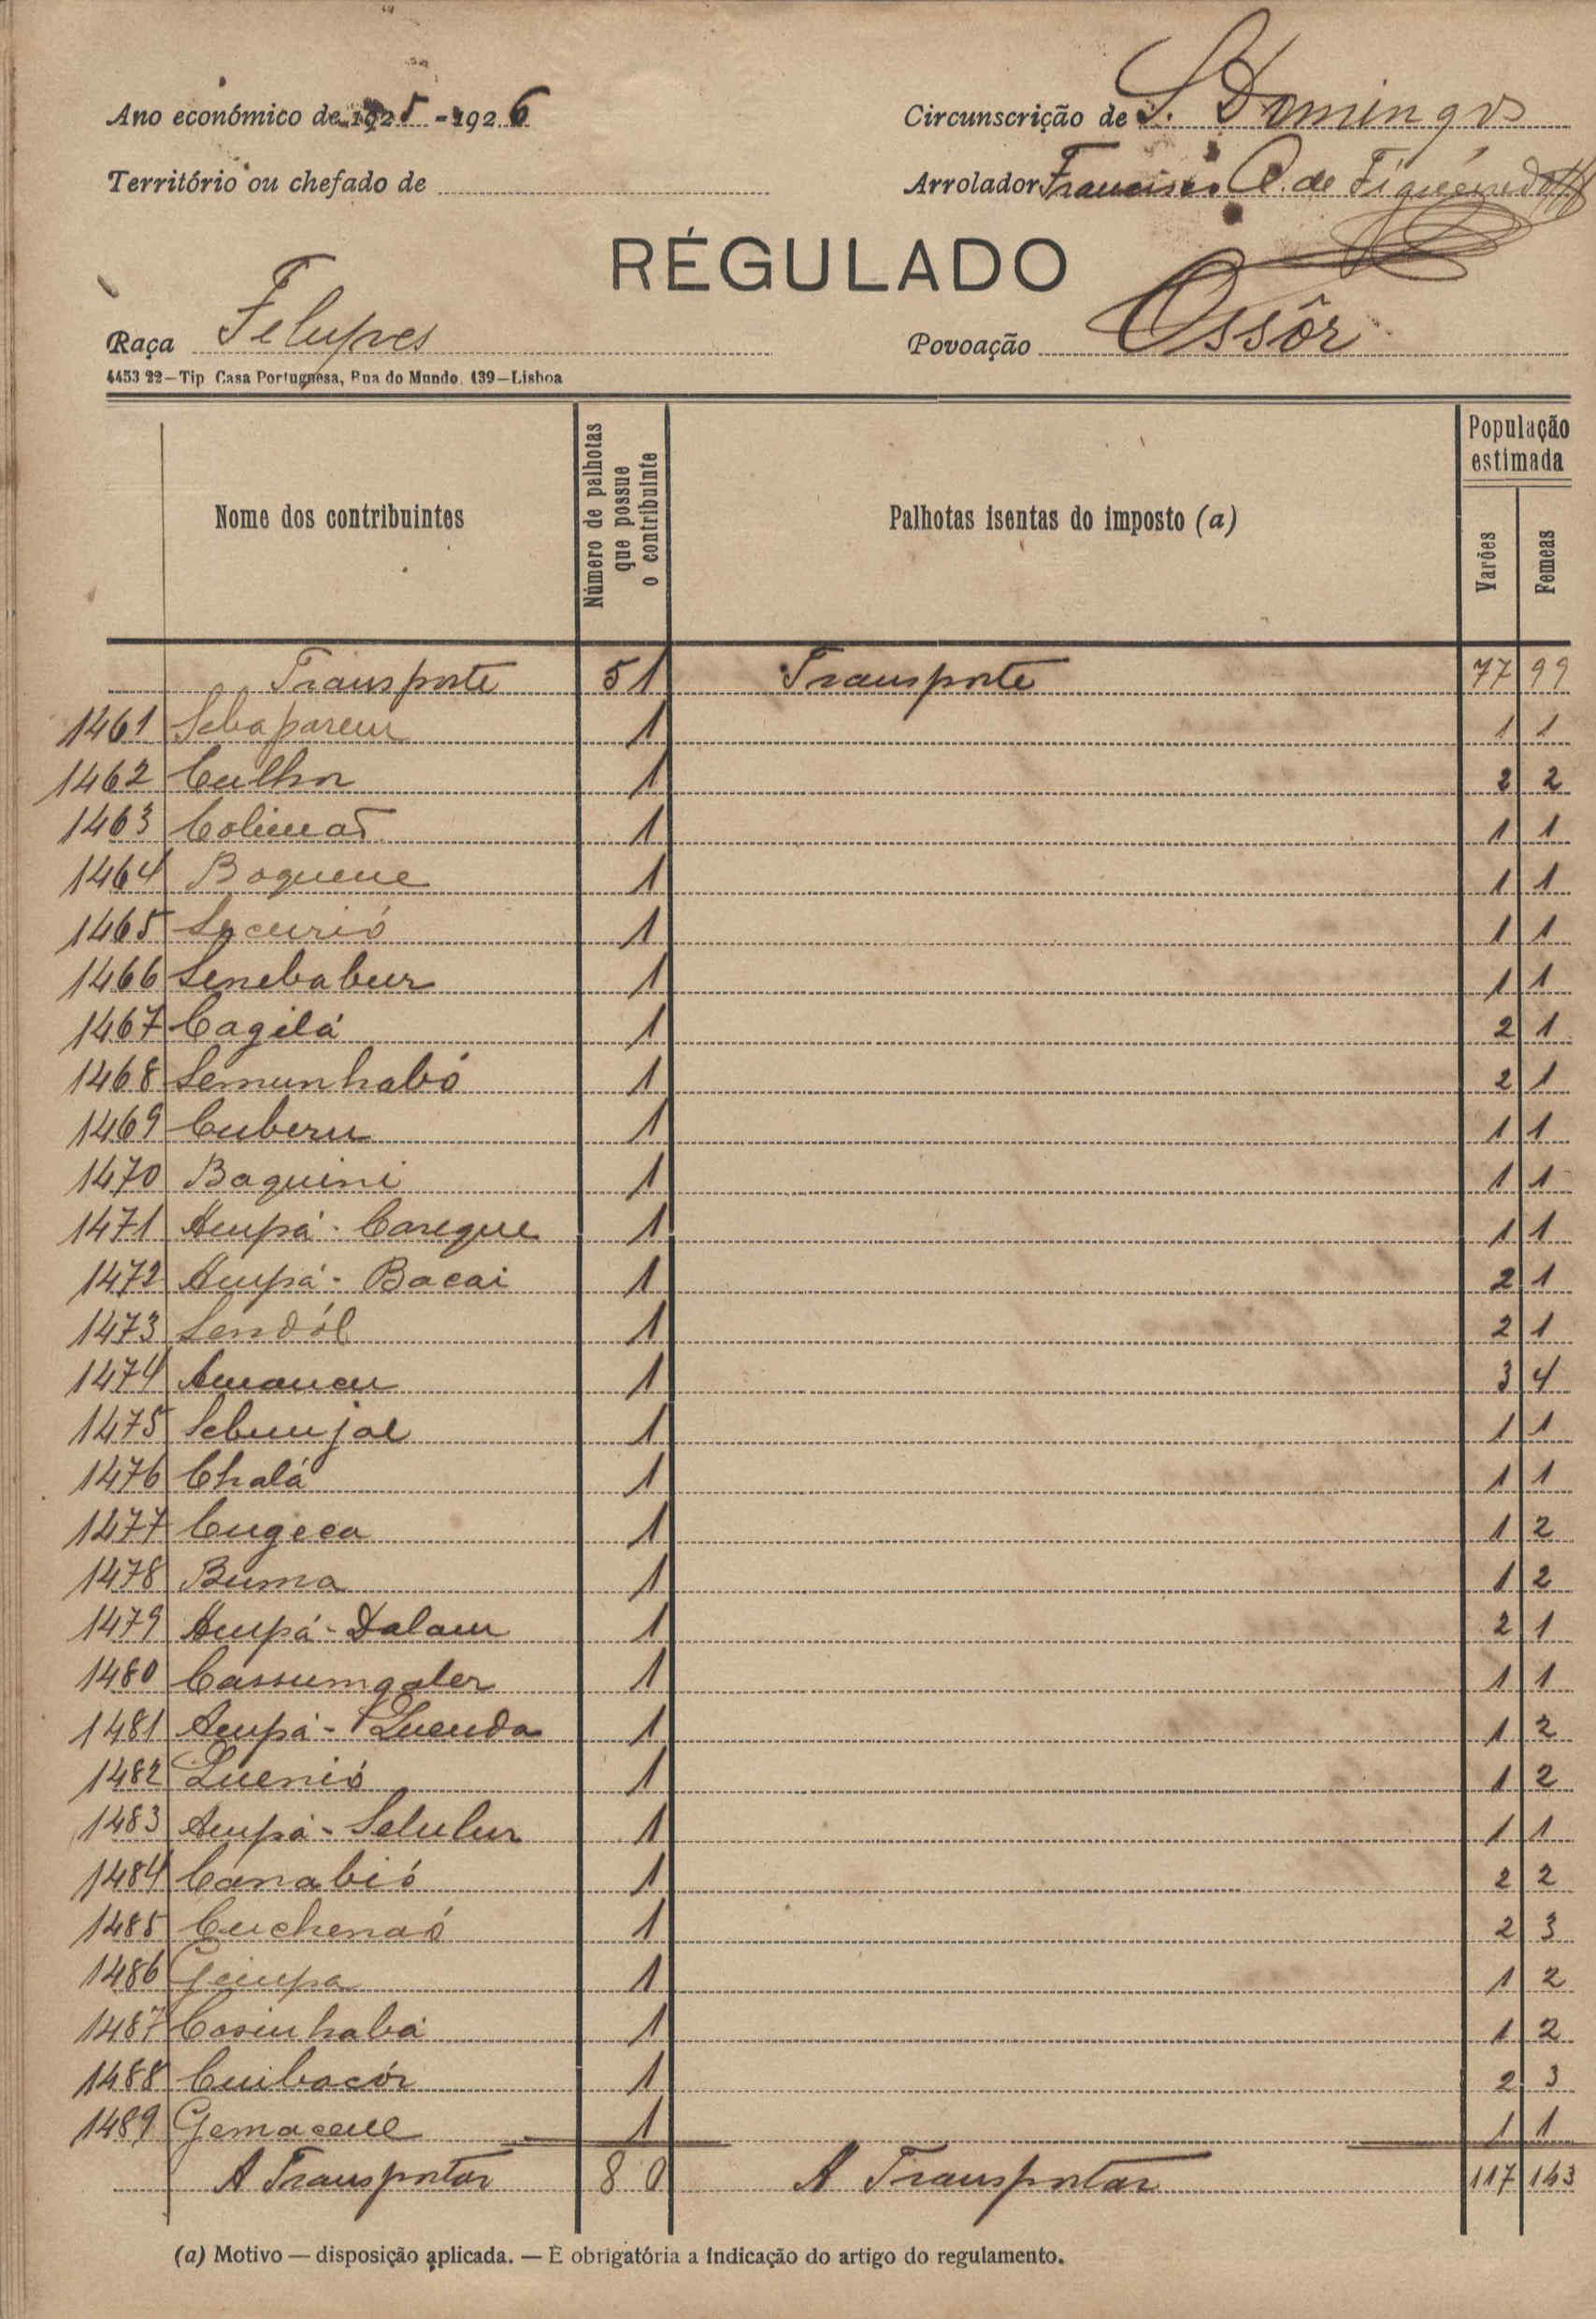 Ano económico de 1925 - 1926
Circunscrição de S. Domingos
Território ou chefado de
Arrolador Francisco C. de Figueiredo
RÉGULADO
Raça Felupes
Povoação Ossôr
4453 22—Tip Casa Portuguesa, Rua do Mundo, 139—Lisboa
Nome dos contribuintes
Número de palhotas que possue o contribuinte
Palhotas isentas do imposto (a)
População estimada
Varões
Femeas
Transporte 51 Transporte 77 99
1461 Sebaparem 1 1 1
1462 Culhor 1 2 2
1463 Colimaõ 1 1 1
1464 Boquene 1 1 1
1465 Securió 1 1 1
1466 Senebabur 1 1 1
1467 Cagilá 1 2 1
1468 Semunhabó 1 2 1
1469 Cuberu 1 1 1
1470 Baquini 1 1 1
1471 Ampá - Careque 1 1 1
1472 Ampá - Bacai 1 2 1
1473 Sendól 1 2 1
1474 Amancu 1 3 4
1475 Sebunjal 1 1 1
1476 Chalá 1 1 1
1477 Cugeca 1 1 2
1478 Buma 1 1 2
1479 Ampá - Dalam 1 2 1
1480 Cassumgaler 1 1 1
1481 Ampá - Quenda 1 1 2
1482 Quenió 1 1 2
1483 Ampá - Selulur 1 1 1
1484 Canabió 1 2 2
1485 Cuchenaó 1 2 3
1486 Geimpa 1 1 2
1487 Casinhaba 1 1 2
1488 Cuibacór 1 2 3
1489 Gemacene 1 1 1
A Transportar 80 A Transportar 117 143
(a) Motivo — disposição aplicada. — É obrigatória a indicação do artigo do regulamento.